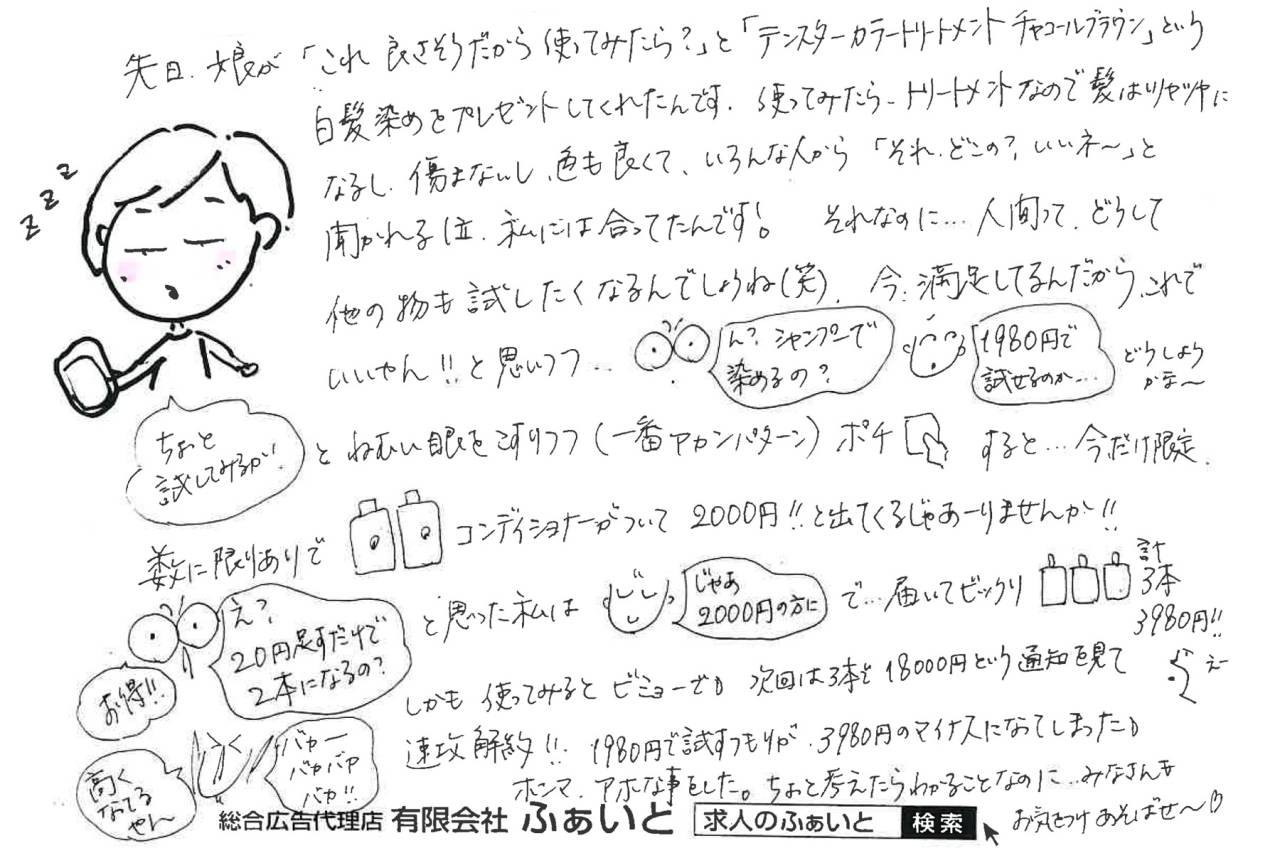 先日、娘が「これ 良さそうだから 使ってみたら?」と「テンスターカラートリートメント チャコールブラウン」という
白髪染めをプレゼントしてくれたんです。使ってみたら、トリートメントなので髪はツヤツヤに
なるし、傷まないし、色も良くて、いろんな人から「それ、どこの?、いいネ〜」と
聞かれる位、私には合ってたんです! それなのに… 人間って、どうして
他の物も試したくなるんでしょうね(笑)、今、満足してるんだから、これで
いいやん!!と思いつつ…
ん?シャンプーで
染めるの?
1980円で
試せるのか…
どうしよう
かな〜
zzz
ちょっと
試してみるかい
とねむい眼をこすりつつ(一番アカンパターン)ポチ
すると…今だけ限定、
数に限りありで
コンディショナーがついて 2000円!!と出てくるじゃあーりませんか!!
え?
20円足すだけで
2本になるの?
お得!!
と思った私は
じゃあ
2000円の方に
で…届いてビックリ
計
3本
3980円!!
えー
しかも 使ってみると ビミョーでの 次回は3本で18000円という通知を見て
速攻解約!! 1980円で試すつもりが、3980円のマイナスになってしまった
高く
なってる
やん
バカー
バカバカ
バカ!!
ホンマ、アホな事をした。ちょっと考えたらわかることなのに…みなさんも
お気をつけあそばせ〜
総合広告代理店 有限会社 ふぁいと 求人のふぁいと 検索